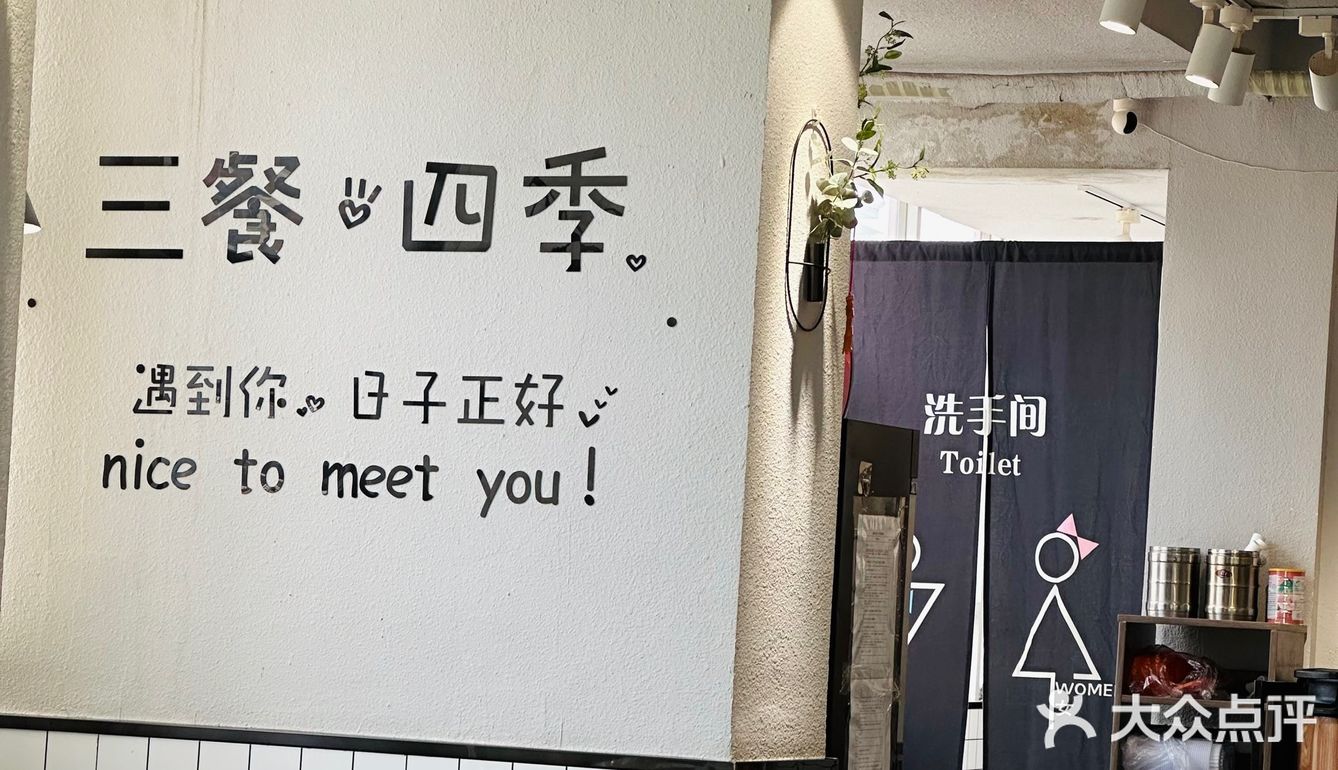 三餐四季
遇到你 日子正好
nice to meet you!
洗手间
Toilet
WOME
大众点评